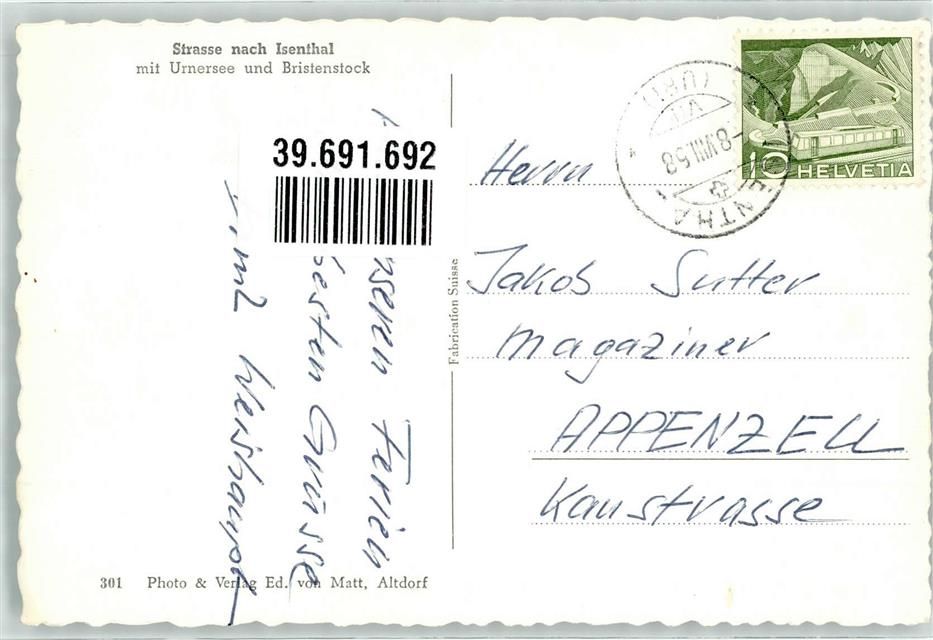 Strasse nach Isenthal
mit Urnersee und Bristenstock
39.691.692
nseren Ferien
besten Grüsse
Fabrication Suisse
301 Photo & Verlag Ed. von Matt, Altdorf
10
HELVETIA
(URI)
-8.VIII.58
ENTHA
Herrn
Jakob Sutter
Magaziner
APPENZELL
Kaustrasse